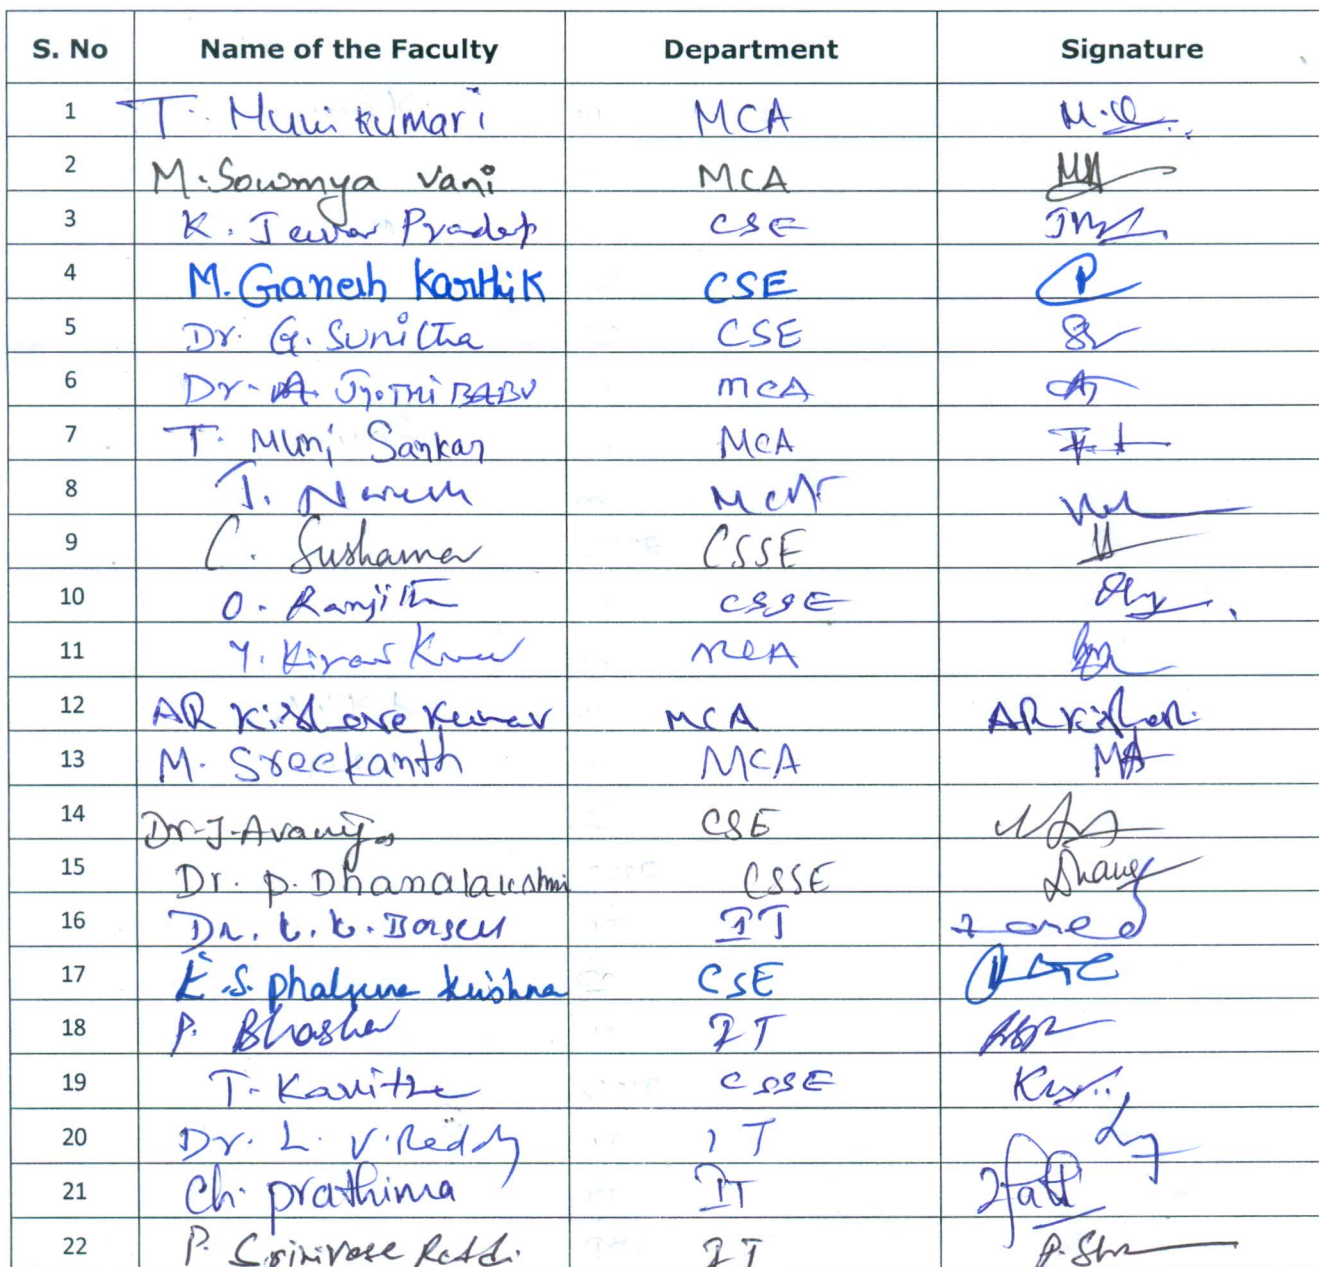 S. No Name of the Faculty Department Signature
1 T. Muni Kumari MCA
2 M. Sowmya Vani MCA
3 K. Jeevan Pradeep CSE
4 M. Ganesh Karthik CSE
5 Dr. G. Sunitha CSE
6 Dr. A. Jyothi BABU MCA
7 T. Muni Sankar MCA
8 T. Naresh MCA
9 C. Sushama CSSE
10 O. Ranjith CSSE
11 Y. Kiran Kumar MCA
12 AR Kishore Kumar MCA AR Kishore
13 M. Sreekanth MCA
14 Dr. J. Avanija CSE
15 Dr. P. Dhanalakshmi CSSE Dhana
16 Dr. K. K. IT
17 E. S. Phalguna Krishna CSE
18 P. Bhasker IT
19 T. Kavitha CSSE
20 Dr. L. V. Reddy IT
21 Ch. Prathima IT
22 P. Srinivasa Reddi IT